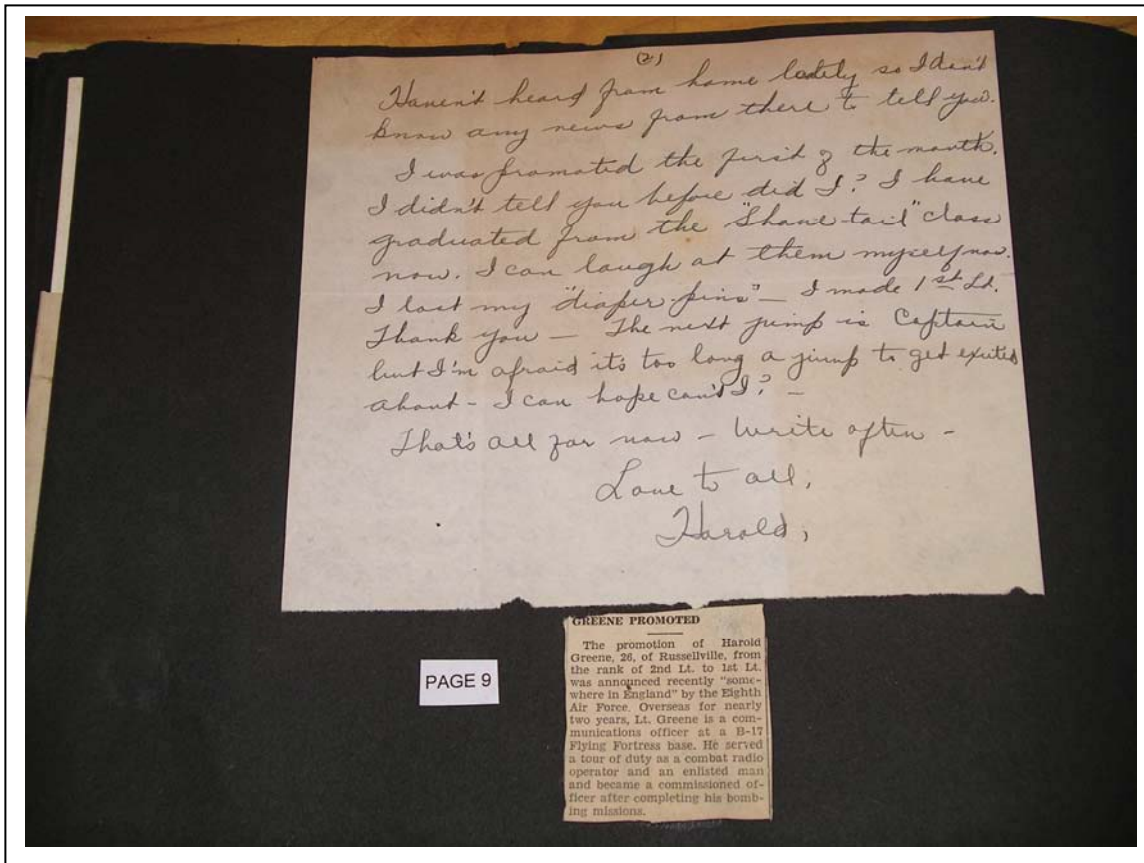 (2)
Haven't heard from home lately so I don't
know any news from there to tell you.
I was promoted the first of the month.
I didn't tell you before did I? I have
graduated from the "Shave tail" class
now. I can laugh at them myself now.
I lost my "diaper-pins" — I made 1st Lt.
Thank you — The next jump is Captain
but I'm afraid it's too long a jump to get exited
about - I can hope can't I? -
That's all for now - Write often -
Love to all,
Harold,
GREENE PROMOTED
The promotion of Harold
Greene, 26, of Russellville, from
the rank of 2nd Lt. to 1st Lt.
was announced recently "some-
where in England" by the Eighth
Air Force. Overseas for nearly
two years, Lt. Greene is a com-
munications officer at a B-17
Flying Fortress base. He served
a tour of duty as a combat radio
operator and an enlisted man
and became a commissioned of-
ficer after completing his bomb-
ing missions.
PAGE 9